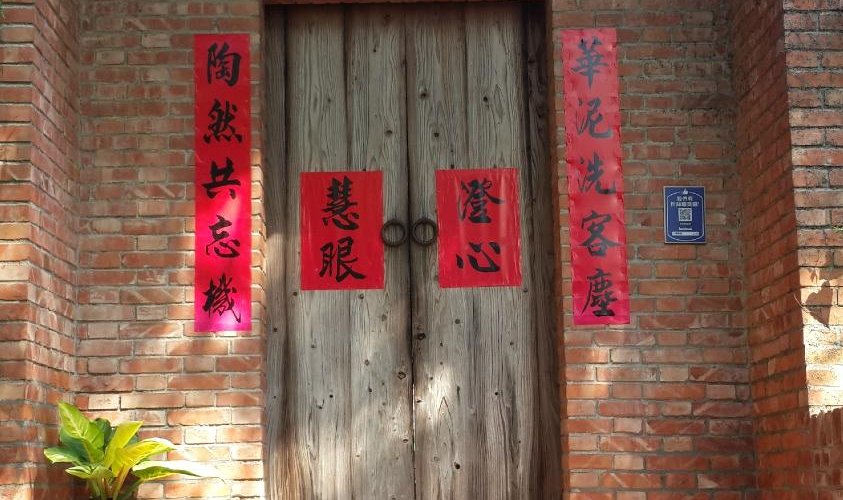 華泥洗客塵
澄心
慧眼
陶然共忘機